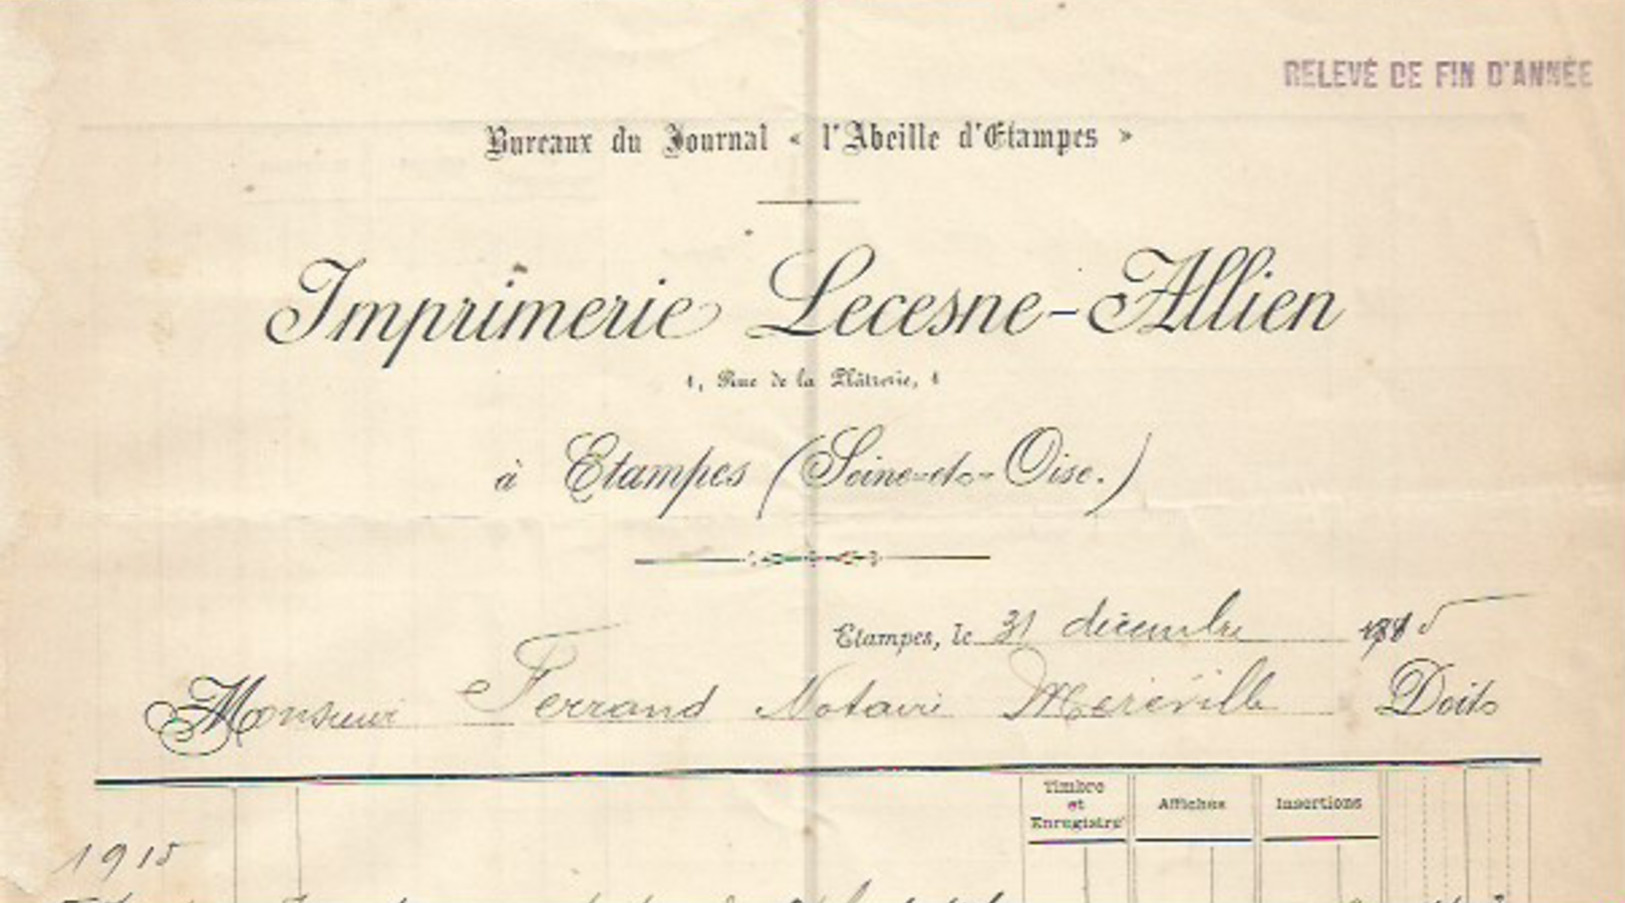 RELEVÉ DE FIN D'ANNÉE
Bureaux du Journal « l'Abeille d'Etampes »
Imprimerie Lecesne-Allien
1, Rue de la Plâtrerie, 1
à Etampes (Seine-et-Oise.)
Etampes, le 31 décembre 1915
Monsieur Ferrand Notaire Méréville Doit
Timbre et Enregistrt Affiches Insertions
1915